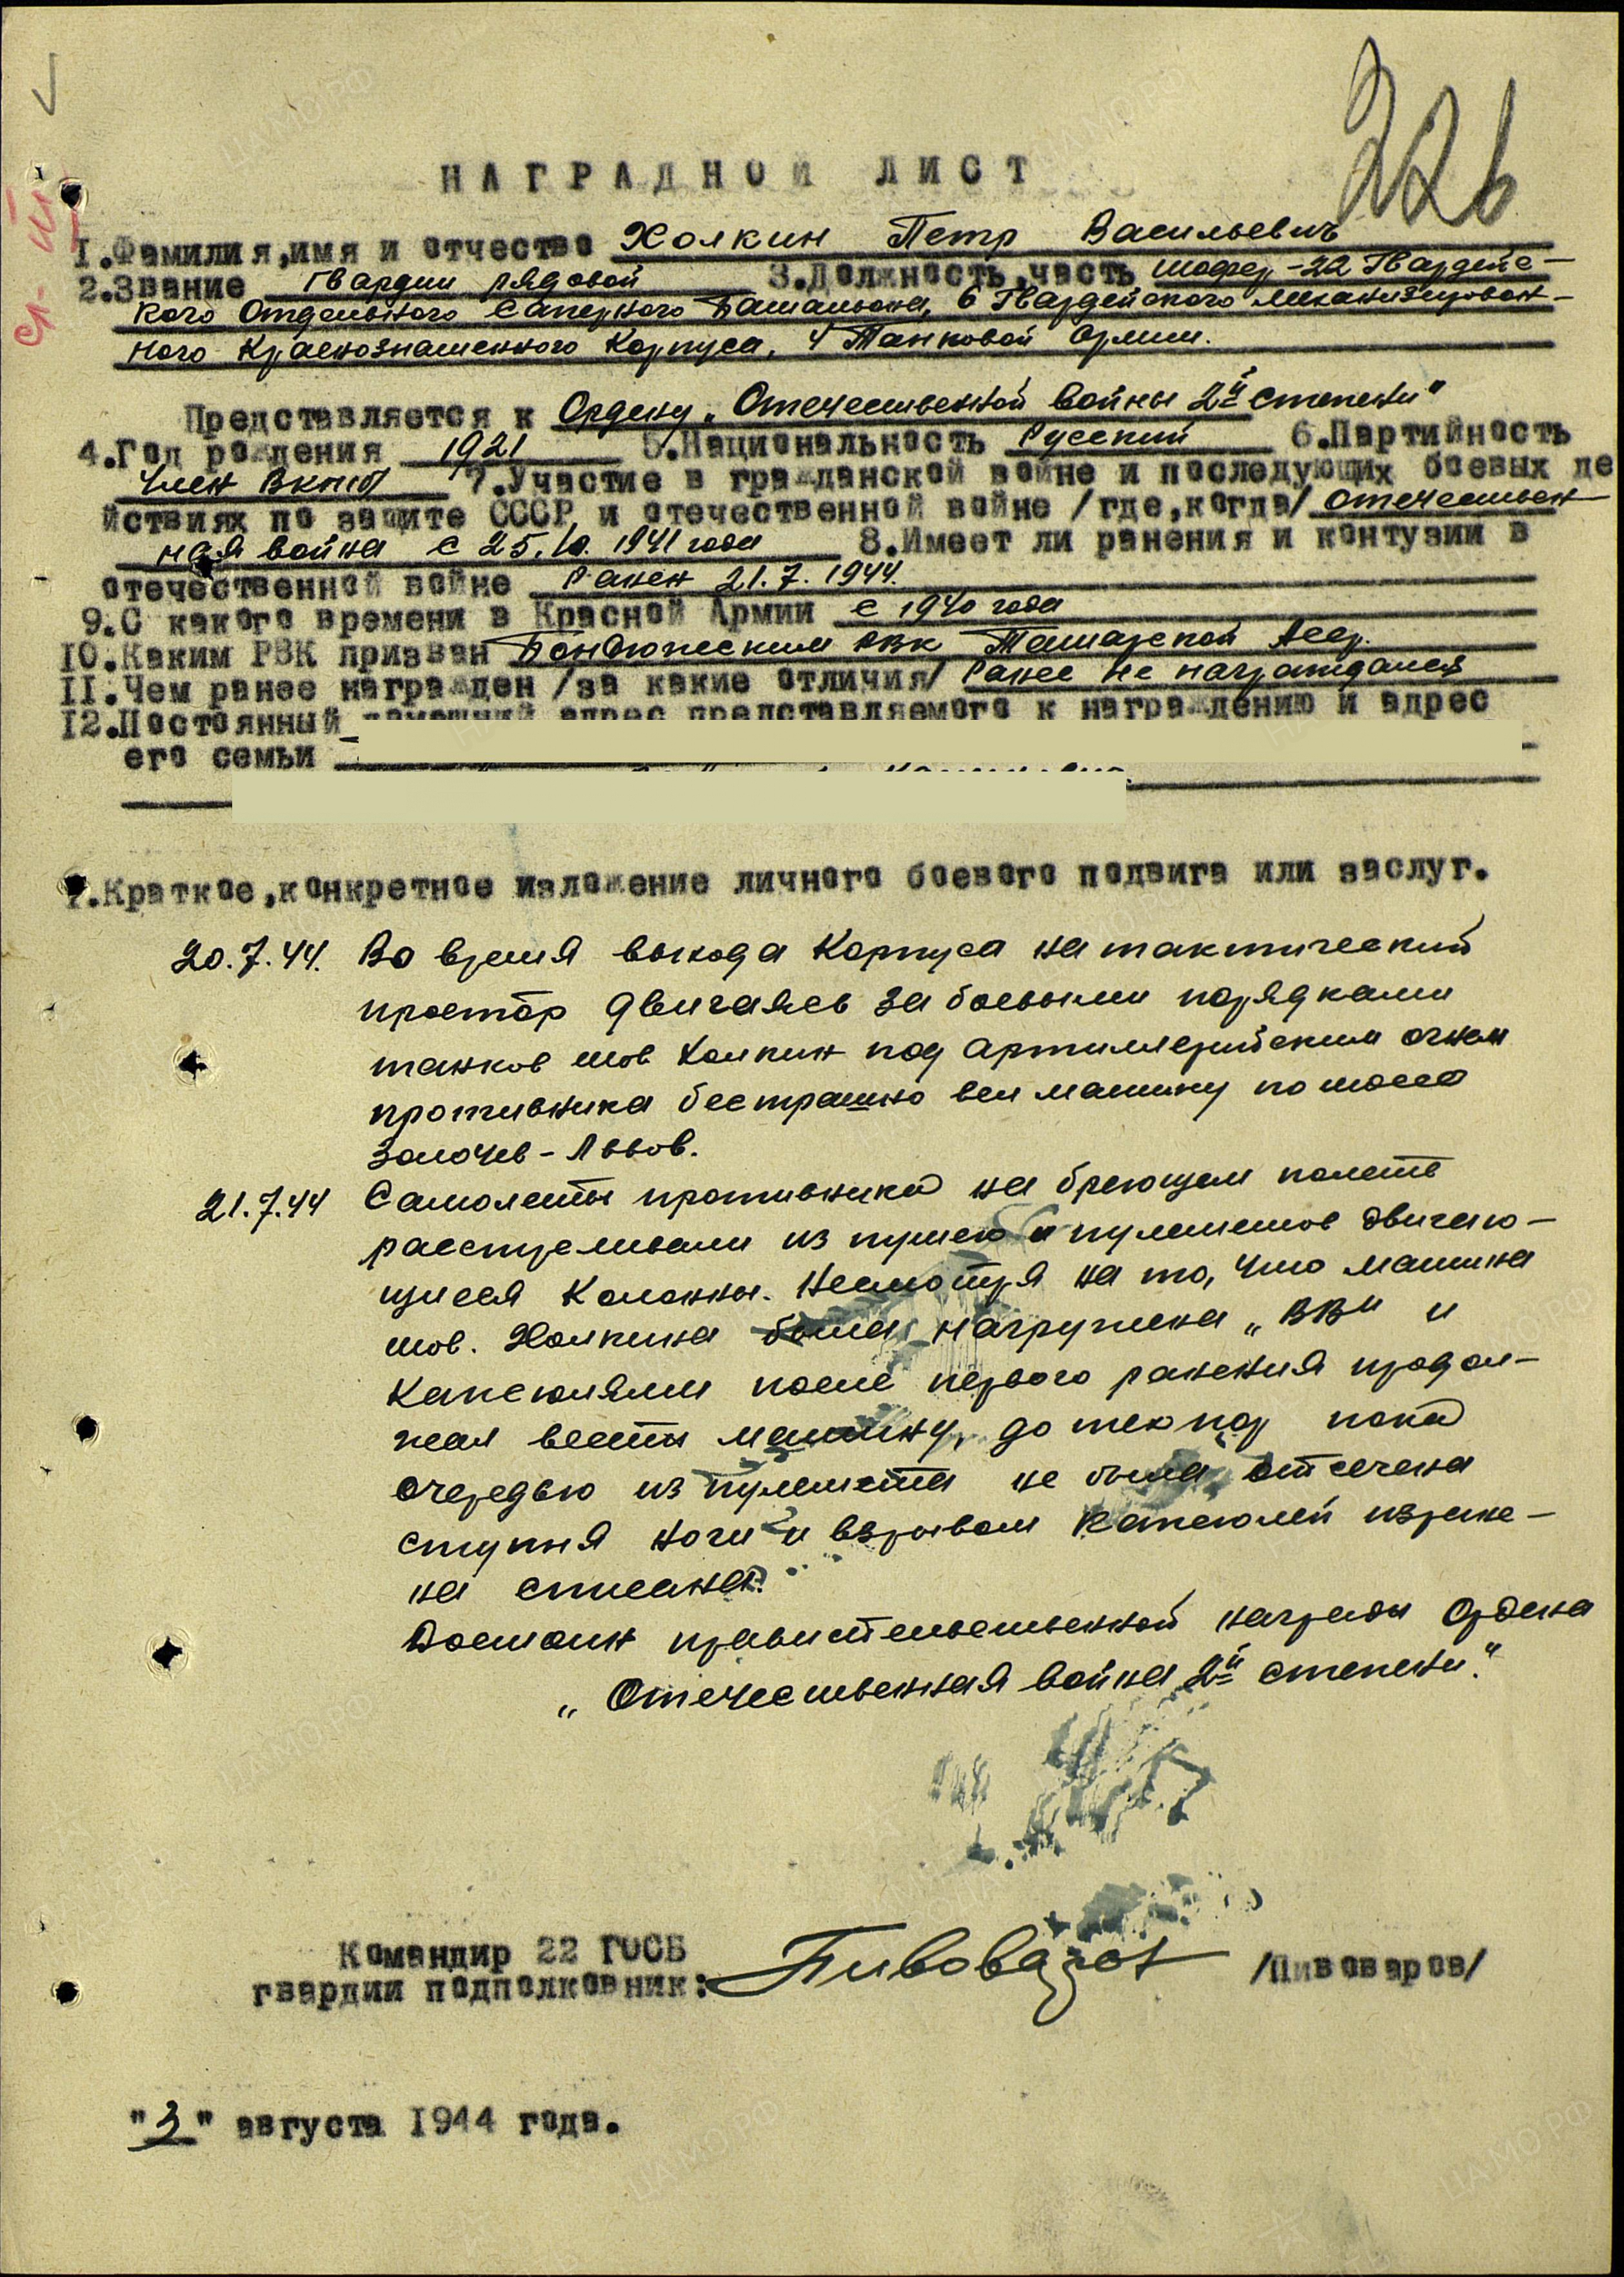 226
НАГРАДНОЙ ЛИСТ
1.Фамилия,имя и отчество Холкин Петр Васильевич
2.Звание Гвардии рядовой 3.Должность,часть шофер -22 Гвардейс-
кого Отдельного Саперного Батальона, 6 Гвардейского механизирован-
ного Краснознаменного Корпуса, 4 Танковой Армии.
Представляется к Ордену „Отечественной войны 2й степени"
4.Год рождения 1921 5.Национальность Русский 6.Партийность
член ВКП(б) 7.Участие в гражданской войне и последующих боевых де
йствиях по защите СССР и отечественной войне /где,когда/ отечествен-
ная война с 25.10.1941 года 8.Имеет ли ранения и контузии в
отечественной войне Ранен 21.7.1944.
9.С какого времени в Красной Армии с 1940 года
10.Каким РВК призван Бондюжским РВК Татарской Асср.
11.Чем ранее награжден /за какие отличия/ Ранее не награждался
12.Постоянный домашний адрес представляемого к награждению и адрес
его семьи
1.Краткое,конкретное изложение личного боевого подвига или заслуг.
20.7.44. Во время выхода Корпуса на тактический
простор двигаясь за боевыми порядками
танков тов Холкин под артиллерийским огнем
противника бестрашно вел машину по шоссе
Золочев - Львов.
21.7.44 Самолеты противника на бреющем полете
расстреливали из пушек и пулеметов двигаю-
щиеся Колонны. Несмотря на то, что машина
тов. Холкина была нагружена „ВВ" и
капсюлями после первого ранения продол-
жал вести машину, до тех пор пока
очередью из пулемета не была отсечена
ступня ноги и взрывом капсюлей изране-
на спина.
Достоин правительственной награды Ордена
„Отечественная война 2й степени."
Командир 22 ГОСБ
гвардии подполковник: Пивоваров /Пивоваров/
"3" августа 1944 года.